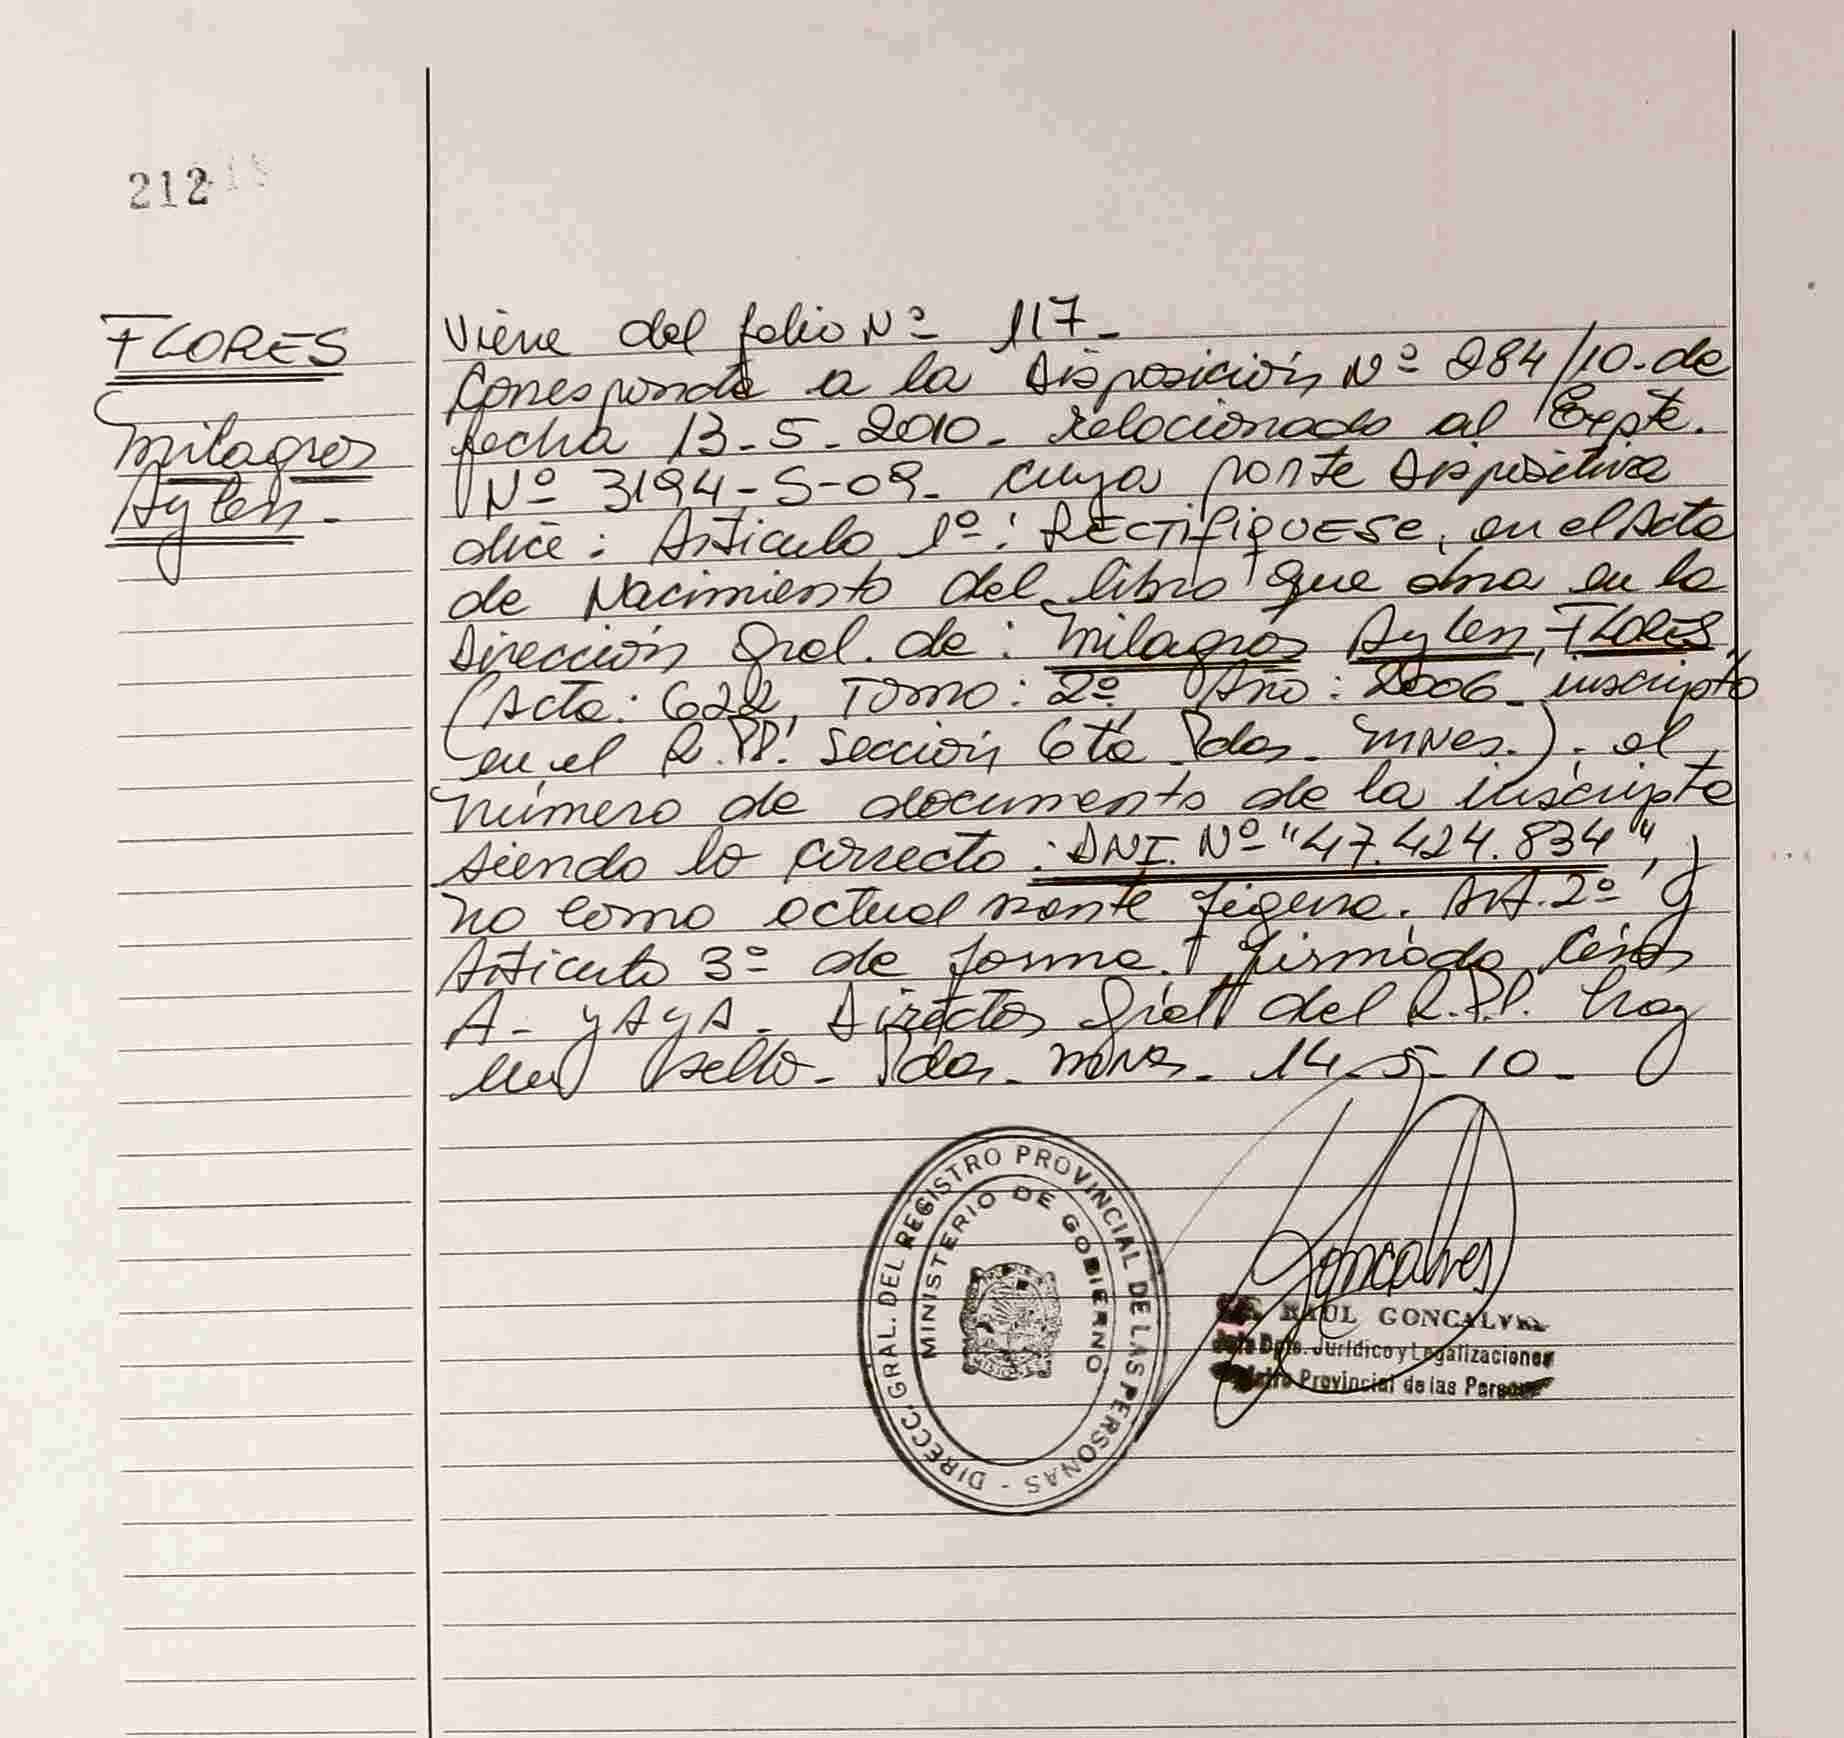 212
FLORES
Milagros
Aylen.-
Viene del folio Nº 117-
Corresponde a la Disposición Nº 284/10. de
fecha 13-5-2010- relacionado al Expte.
Nº 3194-S-09- cuya parte dispositiva
dice: Articulo 1º: RECTIFIQUESE, en el Acta
de Nacimiento del libro que obra en la
Dirección Gral. de: Milagros Aylen, FLORES.
(Acta: 622, Tomo: 2º, Año: 2006- inscripta
en el R.PP. Sección 6ta Pdas. Mnes.). el
número de documento de la inscripta
siendo lo correcto: DNI. Nº "47.424.834", y
no como actual mente figura. Art. 2º y
Articulo 3º de forma. Firmado
A- YAYA- Director Gral del R.P.P. hay
un sello- Pdas. Mnes- 14-5-10-
DIRECC. GRAL. DEL REGISTRO PROVINCIAL DE LAS PERSONAS -
MINISTERIO DE GOBIERNO
Goncalves
RAUL GONCALVES
Jefe Dpto. Jurídico y Legalizaciones
Provincial de las Personas